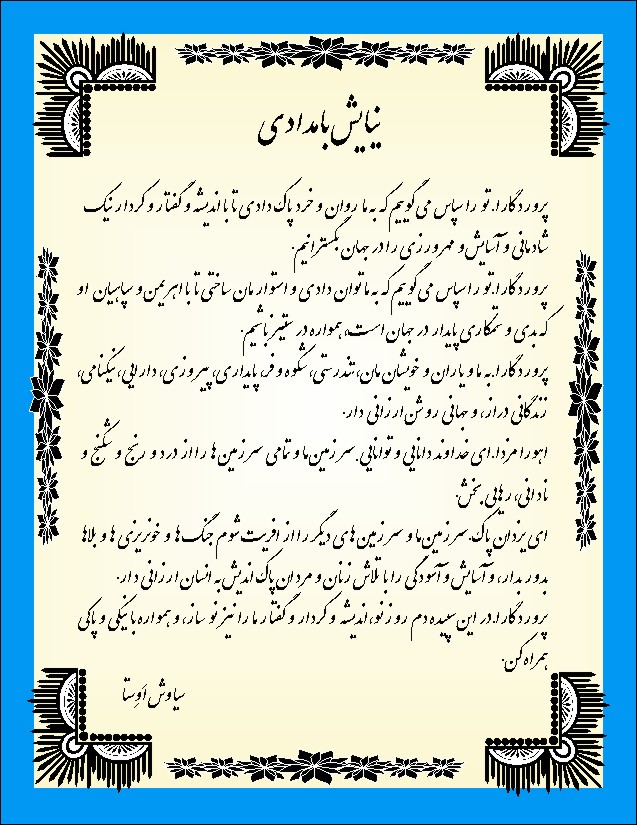 نیایش بامدادی
پروردگارا. تو را سپاس می گوییم که به ما روان و خرد پاک دادی تا با اندیشه و گفتار و کردار نیک
شادمانی و آسایش و مهرورزی را در جهان بگسترانیم.
پروردگارا. تو را سپاس می گوییم که به ما توان دادی و استوارمان ساختی تا با اهریمن و سپاهیان او
که بدی و ستمکاری پایدار در جهان است، همواره در ستیز باشیم.
پروردگارا. به ما و یاران و خویشان مان، تندرستی، شکوه و فر، پایداری، پیروزی، دارایی، نیکنامی،
زندگانی دراز، و جهانی روشن ارزانی دار.
اهورا مزدا. ای خداوند دانایی و توانایی. سرزمین ما و تمامی سرزمین ها را از درد و رنج و شکنج و
نادانی، رهایی بخش.
ای یزدان پاک. سرزمین ما و سرزمین های دیگر را از افریت شوم جنگ ها و خونریزی ها و بلاها
بدور بدار، و آسایش و آسودگی را با تلاش زنان و مردان پاک اندیش به انسان ارزانی دار.
پروردگارا. در این سپیده دم روز نو، اندیشه و کردار و گفتار ما را نیز نو ساز، و همواره با نیکی و پاکی
همراه کن.
سیاوش اَوِستا